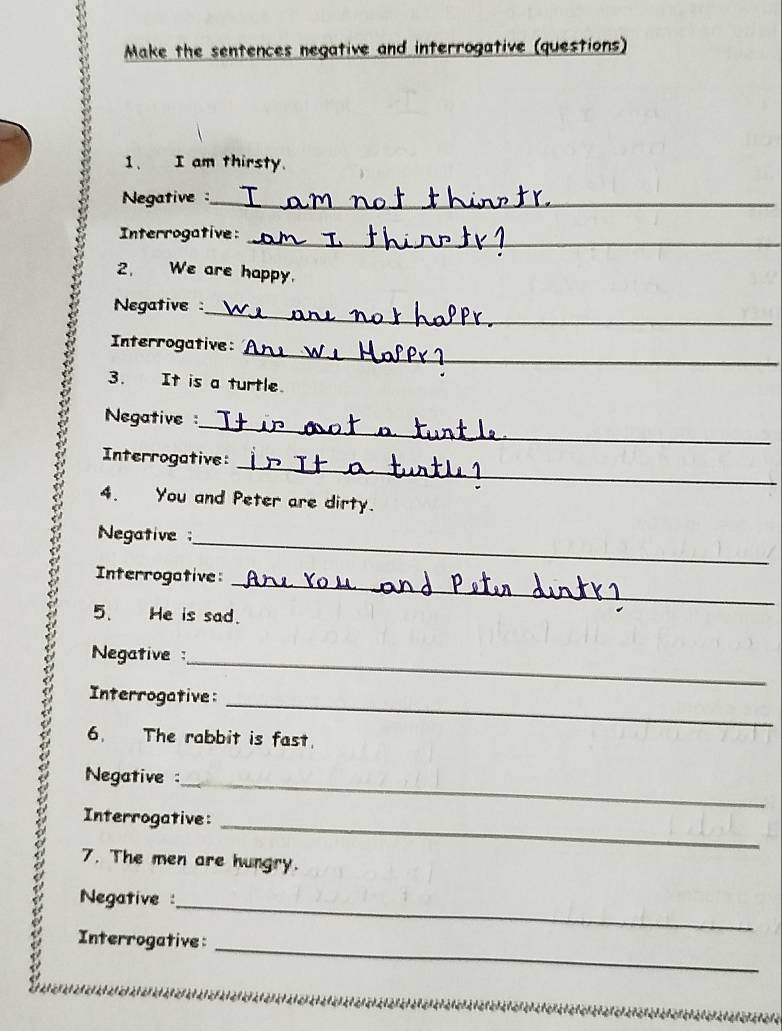 Make the sentences negative and interrogative (questions)
1. I am thirsty.
Negative : I am not thirsty.
Interrogative: am I thirsty?
2. We are happy.
Negative : We are not happy.
Interrogative: Are We Happy?
3. It is a turtle.
Negative : It is not a turtle.
Interrogative: is It a turtle?
4. You and Peter are dirty.
Negative :
Interrogative: Are You and Peter dirty?
5. He is sad.
Negative :
Interrogative:
6. The rabbit is fast.
Negative :
Interrogative:
7. The men are hungry.
Negative :
Interrogative: